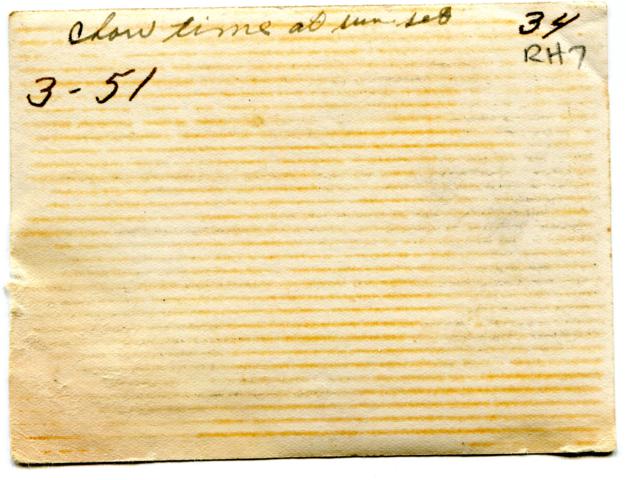 Chow time at sun set
34
RH7
3-51